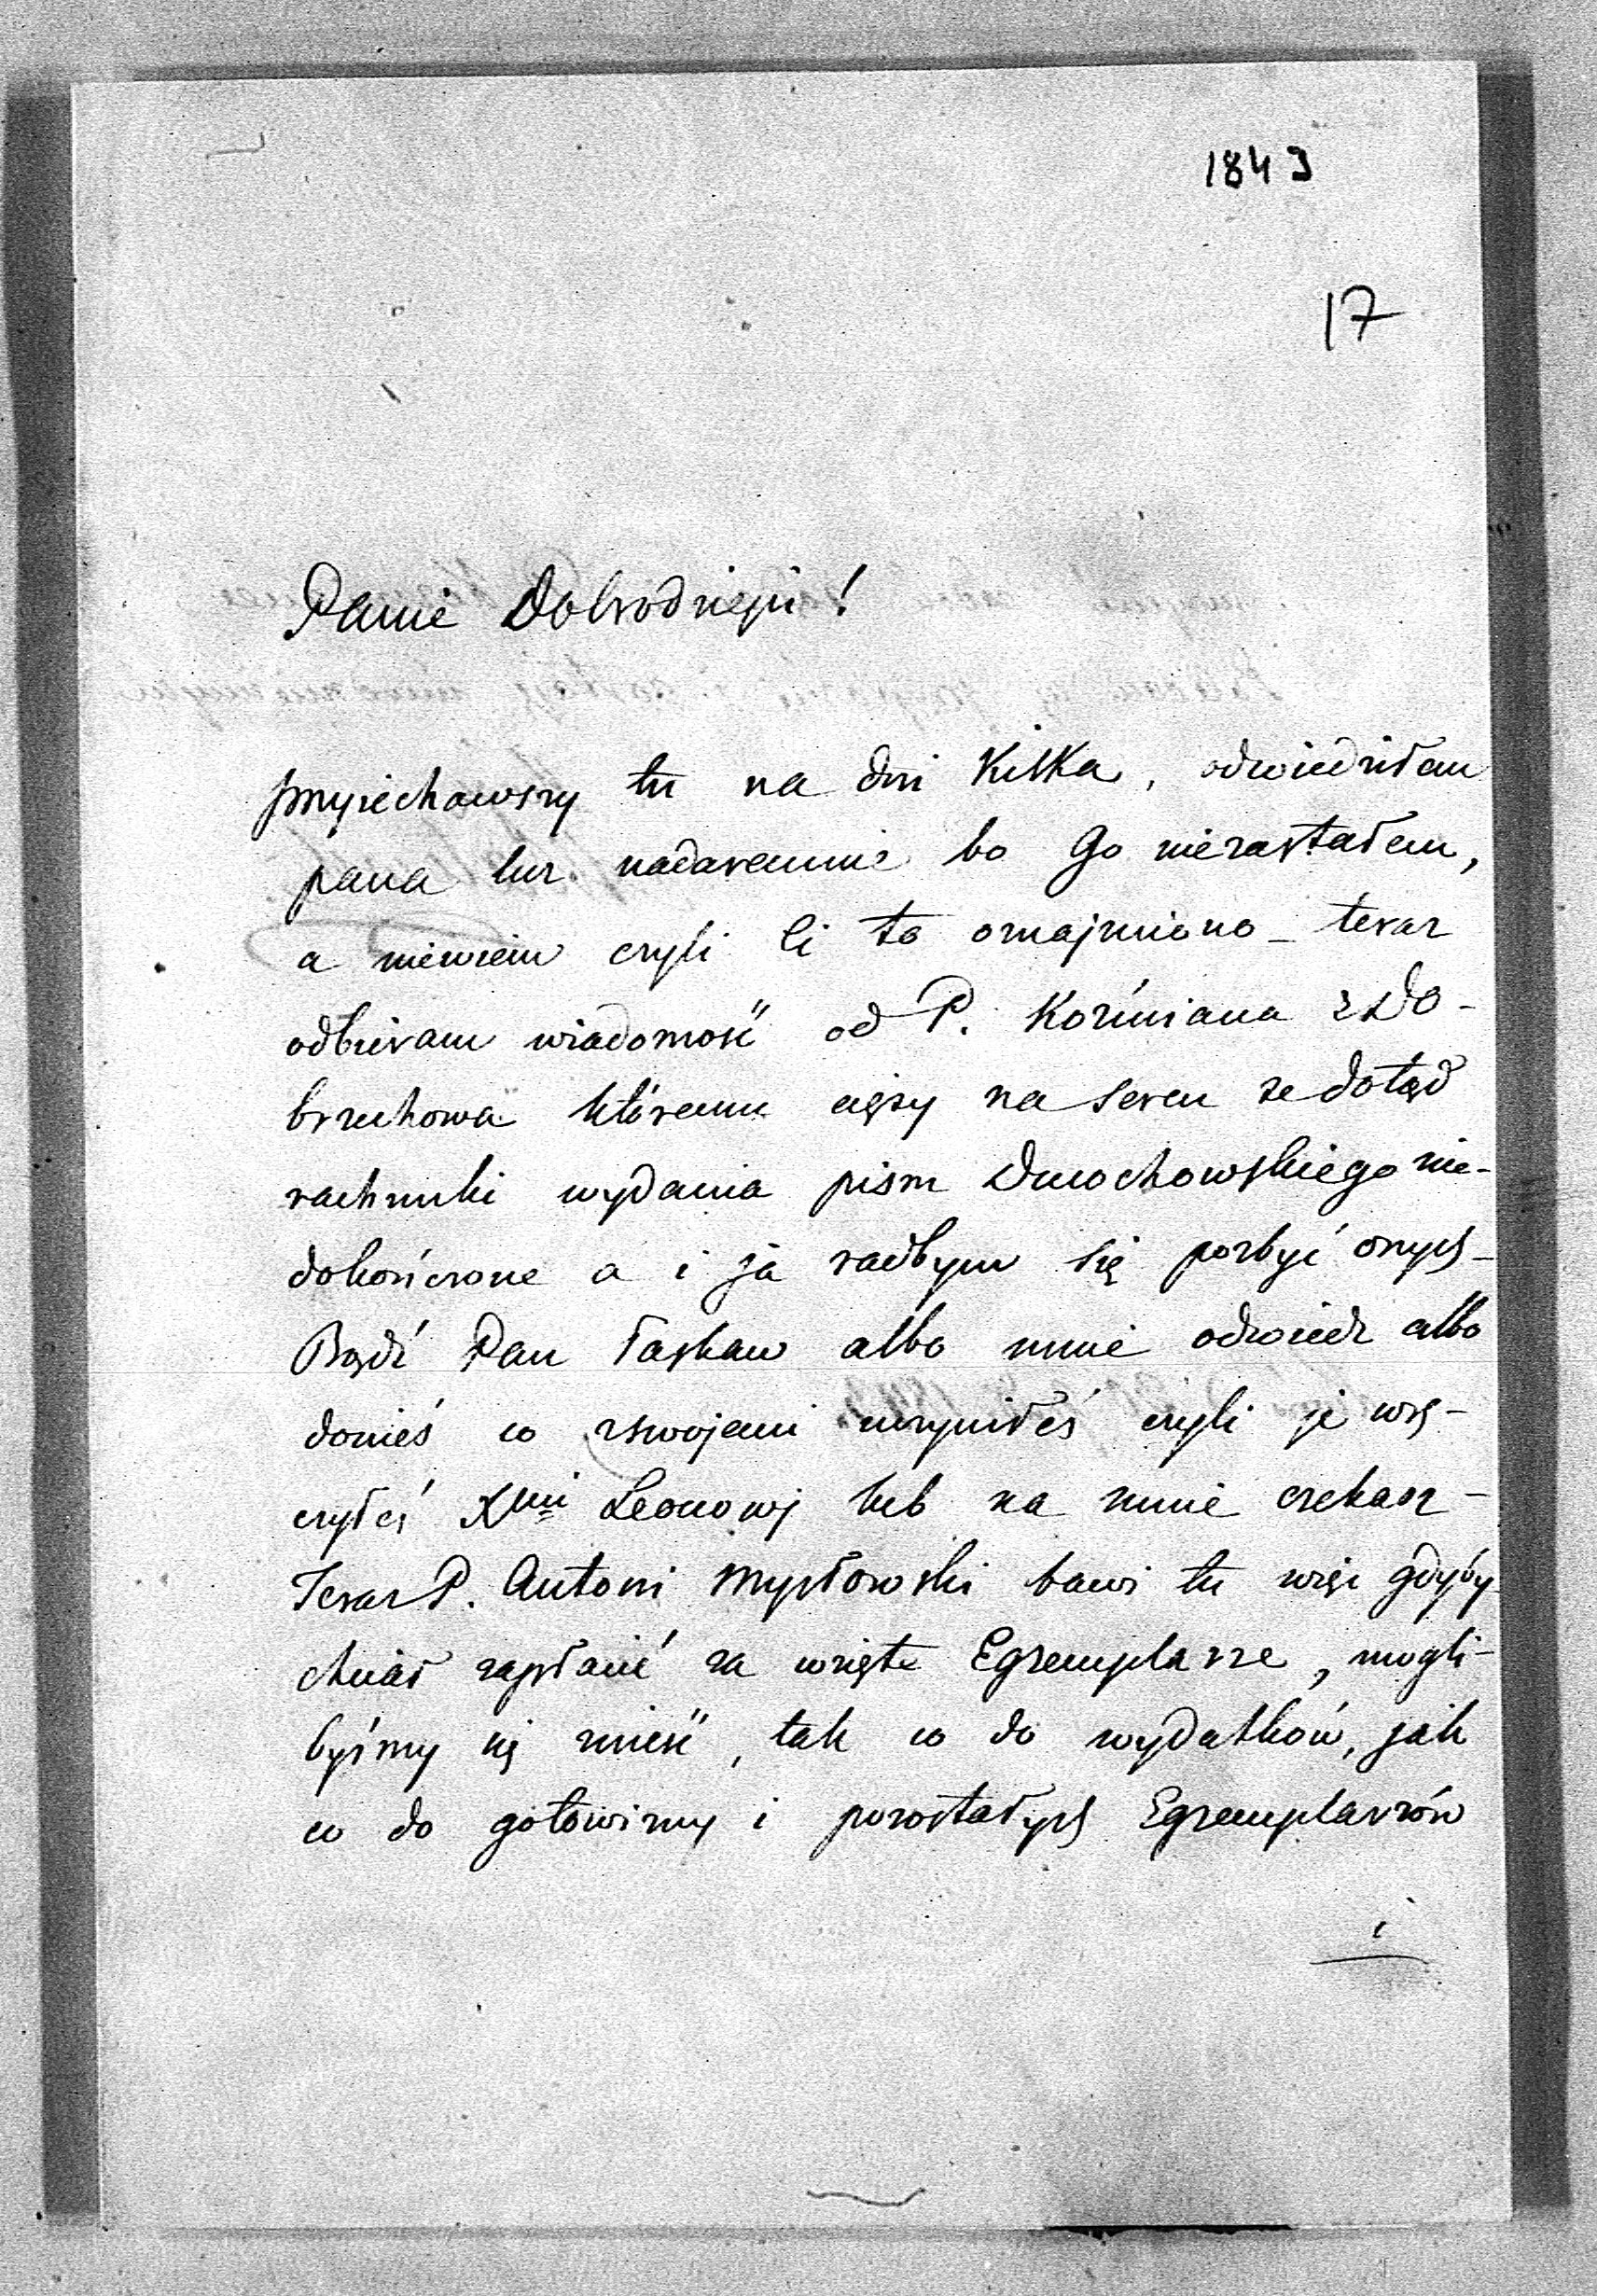 1843
17
Panie Dobrodzieju!
przyiechawszy tu na dni kilka, odwiedziłem
pana lecz nadaremnie bo Go niezastałem,
a niewiem czyli li to oznajmiono _ teraz
odbieram wiadomość od P. Koźmiana z Do-
brzechowa któremu cięży na sercu ze dotąd
rachunki wydania pism Dmochowskiego nie-
dokończone a i ja radbym się pozbyć onych _
Bądź Pan łaskaw albo mnie odwiedz albo
donieś co zswojemi uczyniłeś czyli je wrę-
czyłeś Xnie Leonowj lub na mnie czekasz _
Teraz P. Antoni Mysłowski bawi tu więc gdyby
chciał zapłacić za wzięte Egzemplarze, mogli-
byśmy się znieść, tak co do wydatków, jak
co do gotowizny i pozostałych Egzemplarzów
i